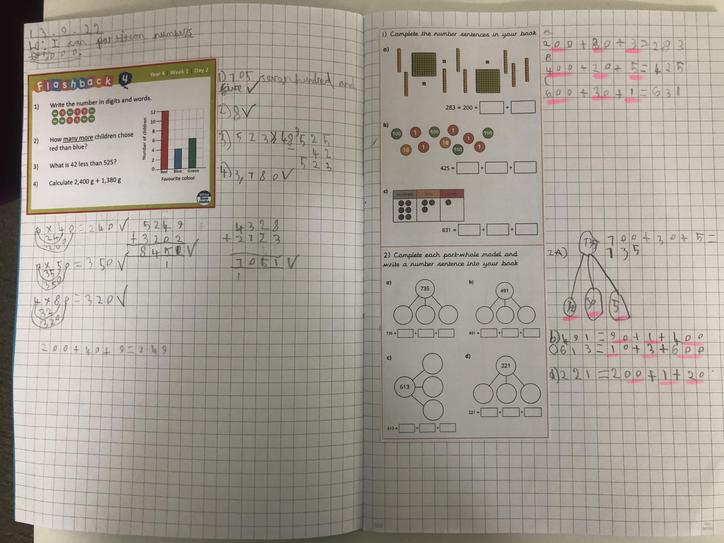 13.0.22
I can partition numbers
Flashback 4
Year 4 Week 2 Day 2
1) Write the number in digits and words.
2) How many more children chose
red than blue?
3) What is 42 less than 525?
4) Calculate 2,400 g + 1,380 g
Number of children
12
10
8
6
4
2
0
Red Blue Green
Favourite colour
1) 705 seven hundred and
five ✓
2) 8 ✓
3) 523 483 525
42
523
4) 3,780 ✓
6 x 40 = 240 ✓
7 x 50 = 350 ✓
4 x 80 = 320 ✓
5249
+ 3202
8451 ✓
1
4328
+ 2723
7051 ✓
1
200 + 40 + 9 = 249
1) Complete the number sentences in your book
a)
283 = 200 + +
b)
100 1 1 1 100
10 1 10 100 1
425 = + +
c)
Hundreds Tens Ones
631 = + +
2) Complete each part-whole model and
write a number sentence into your book
a) 735
735 = + +
b) 491
491 = + +
c) 613
613 = + +
d) 221
221 = + +
200 + 80 + 3 = 283
B
400 + 20 + 5 = 425
C
600 + 30 + 1 = 631
2A) 735 700 + 30 + 5 =
735
30 5
b) 491 = 90 + 1 + 400
613 = 10 + 3 + 600
d) 221 = 200 + 1 + 20